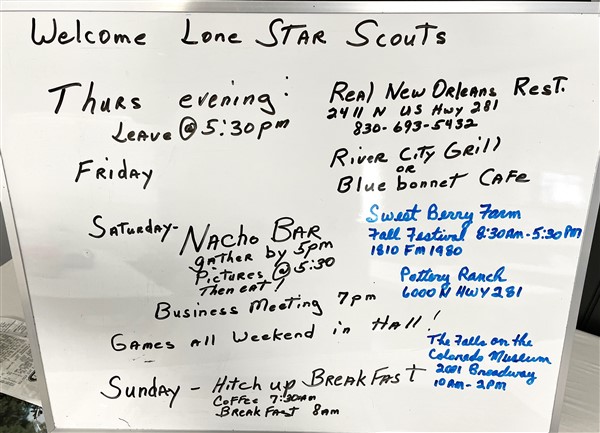 Welcome Lone Star Scouts
Thurs evening:
Leave @ 5:30pm
Real New Orleans Rest.
2411 N US Hwy 281
830-693-5432
Friday
River City Grill
or
Blue bonnet Cafe
Saturday- Nacho Bar
gather by 5pm
Pictures @ 5:30
Then eat!
Business Meeting 7pm
Games all Weekend in Hall!
Sweet Berry Farm
Fall Festival 8:30am-5:30pm
1810 Fm 1980
Pottery Ranch
6000 N HWY 281
The Falls on the
Colorado Museum
2001 Broadway
10am-2pm
Sunday - Hitch up Breakfast
Coffee 7:30am
Breakfast 8am